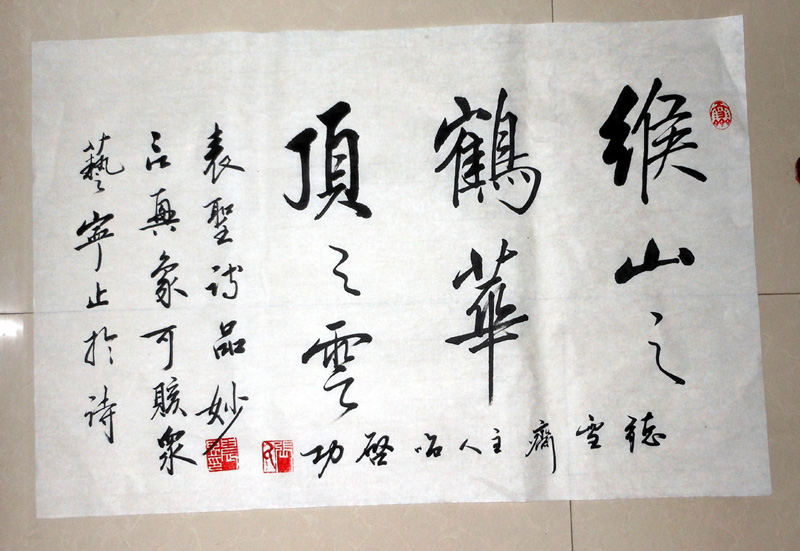 緱山之
鶴華
頂之雲
雪齋主人 啓功
表聖詩品妙
言真象可賅眾
藝寧止於詩